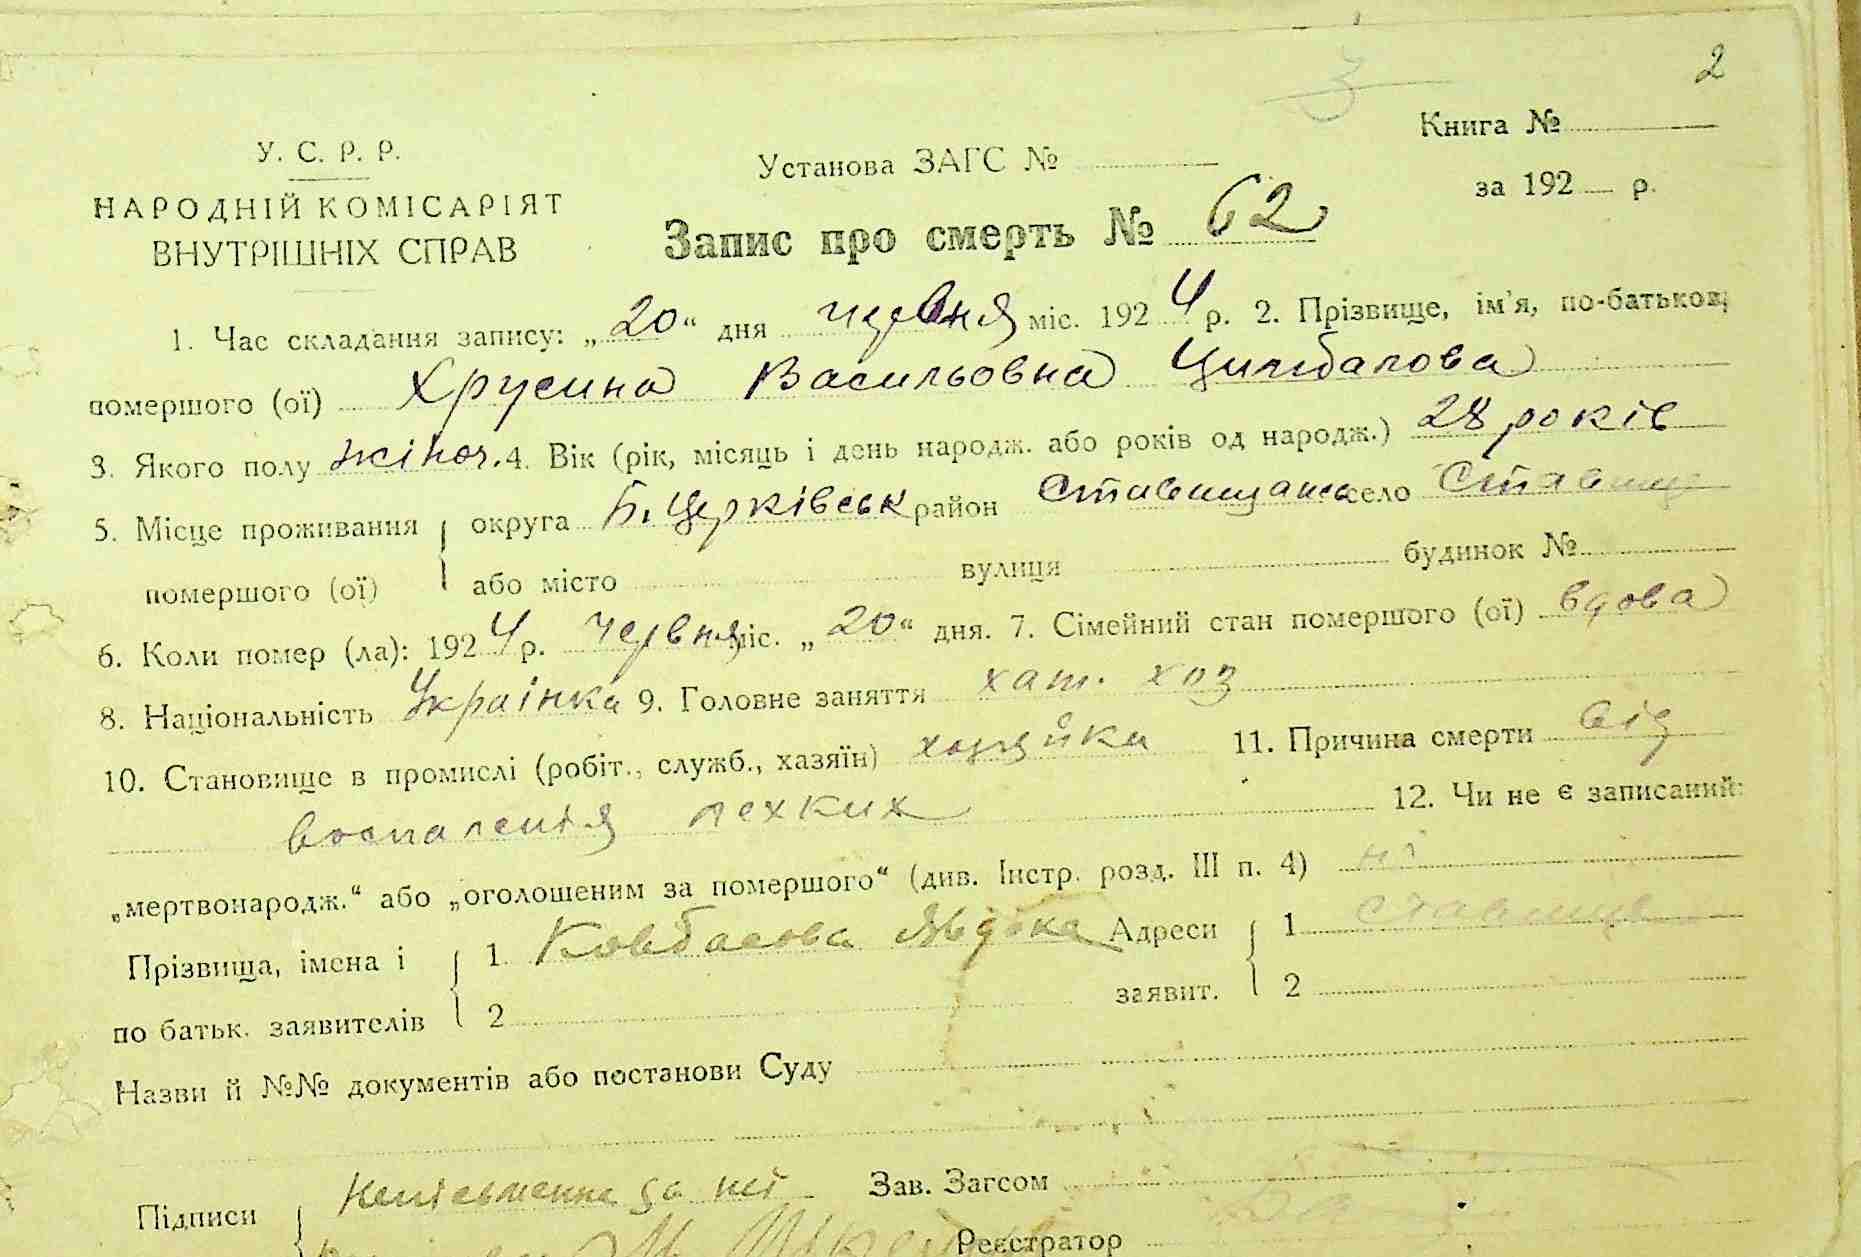 2
3
Книга №
У. С. Р. Р.
Установа ЗАГС №
за 192 р.
НАРОДНІЙ КОМІСАРІЯТ
ВНУТРІШНІХ СПРАВ
Запис про смерть № 62
1. Час складання запису: „20“ дня червня міс. 1924 р. 2. Прізвище, ім'я, по-батькові
помершого (ої) Хрусина Васильовна Цимбалова
3. Якого полу жіноч. 4. Вік (рік, місяць і день народж. або років од народж.) 28 років
5. Місце проживання округа Б. Церківськ район Ставищанськ село Ставище
помершого (ої) або місто вулиця будинок №
6. Коли помер (ла): 1924 р. Червня міс. „20“ дня. 7. Сімейний стан помершого (ої) вдова
8. Національність Украінка 9. Головне заняття хат. хоз
10. Становище в промислі (робіт., служб., хазяїн) хозяйка 11. Причина смерти від
воспаленія лехких 12. Чи не є записаний:
„мертвонародж.“ або „оголошеним за помершого“ (див. Інстр. розд. III п. 4) ні
Прізвища, імена і 1. Ковбасова Явдоха Адреси 1 Ставище
по батьк. заявителів 2 заявит. 2
Назви й №№ документів або постанови Суду
Підписи Неписьменна за неї Зав. Загсом
Реєстратор